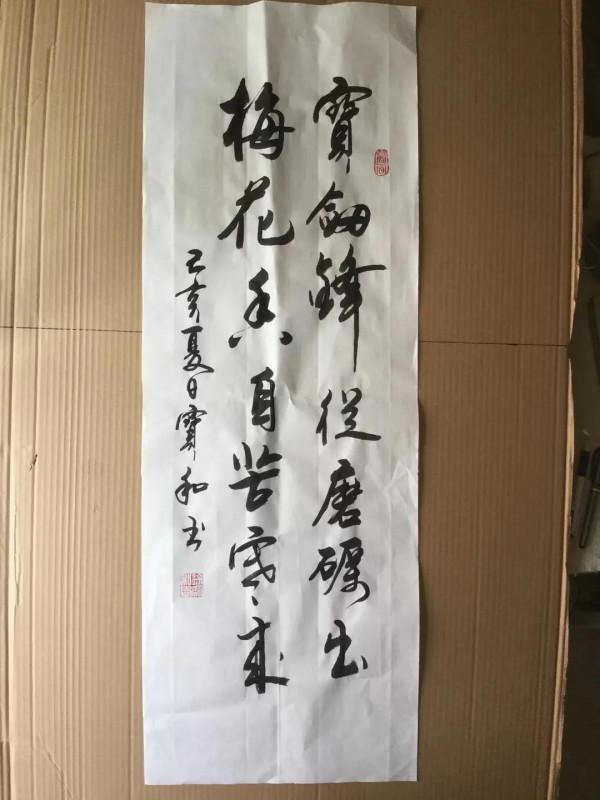 寶劍鋒從磨礪出
梅花香自苦寒来
己亥夏日寶和书